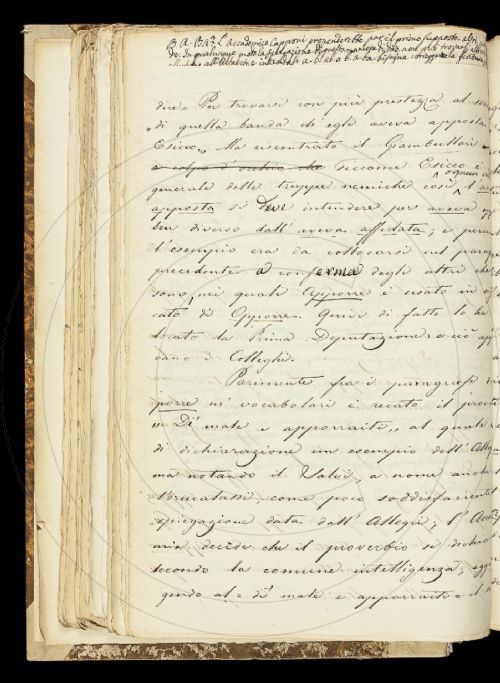 B. A. Ba? L'Accademico Capponi prenderebbe per il primo supposto
dice „ Per trovarsi con più prestezza al
„ di quella banda ch'egli aveva apposta
Esicco „ Ma riscontrato il Giambullari
e colpa d'occhio che siccome Esicco è
generale delle truppe nemiche così ognun
apposta si deve intendere per aveva
ben diverso dall'aveva affidata; e perciò
l'esempio era da collocarsi nel paragr
precedente a conferma degli altri che
sono, nei quali Apporre è usato in
cato di Opporre. Quivi di fatto lo ha
locato la Prima Deputazione e ciò
vano i Colleghi.
Parimente fra i paragrafi
porre ne' vocabolari è recato il prover
„ Di' male e apporraite „ al quale
di dichiarazione un esempio dell'Alleg
ma notando il Salvi, a nome anche
Brucalassi come poco soddisfacente
spiegazione data dall'Allegri; l'Acca
mia decide che il proverbio si dichiari
secondo la comune intelligenza; aggiu
gendo al = di' male e apporraite = il